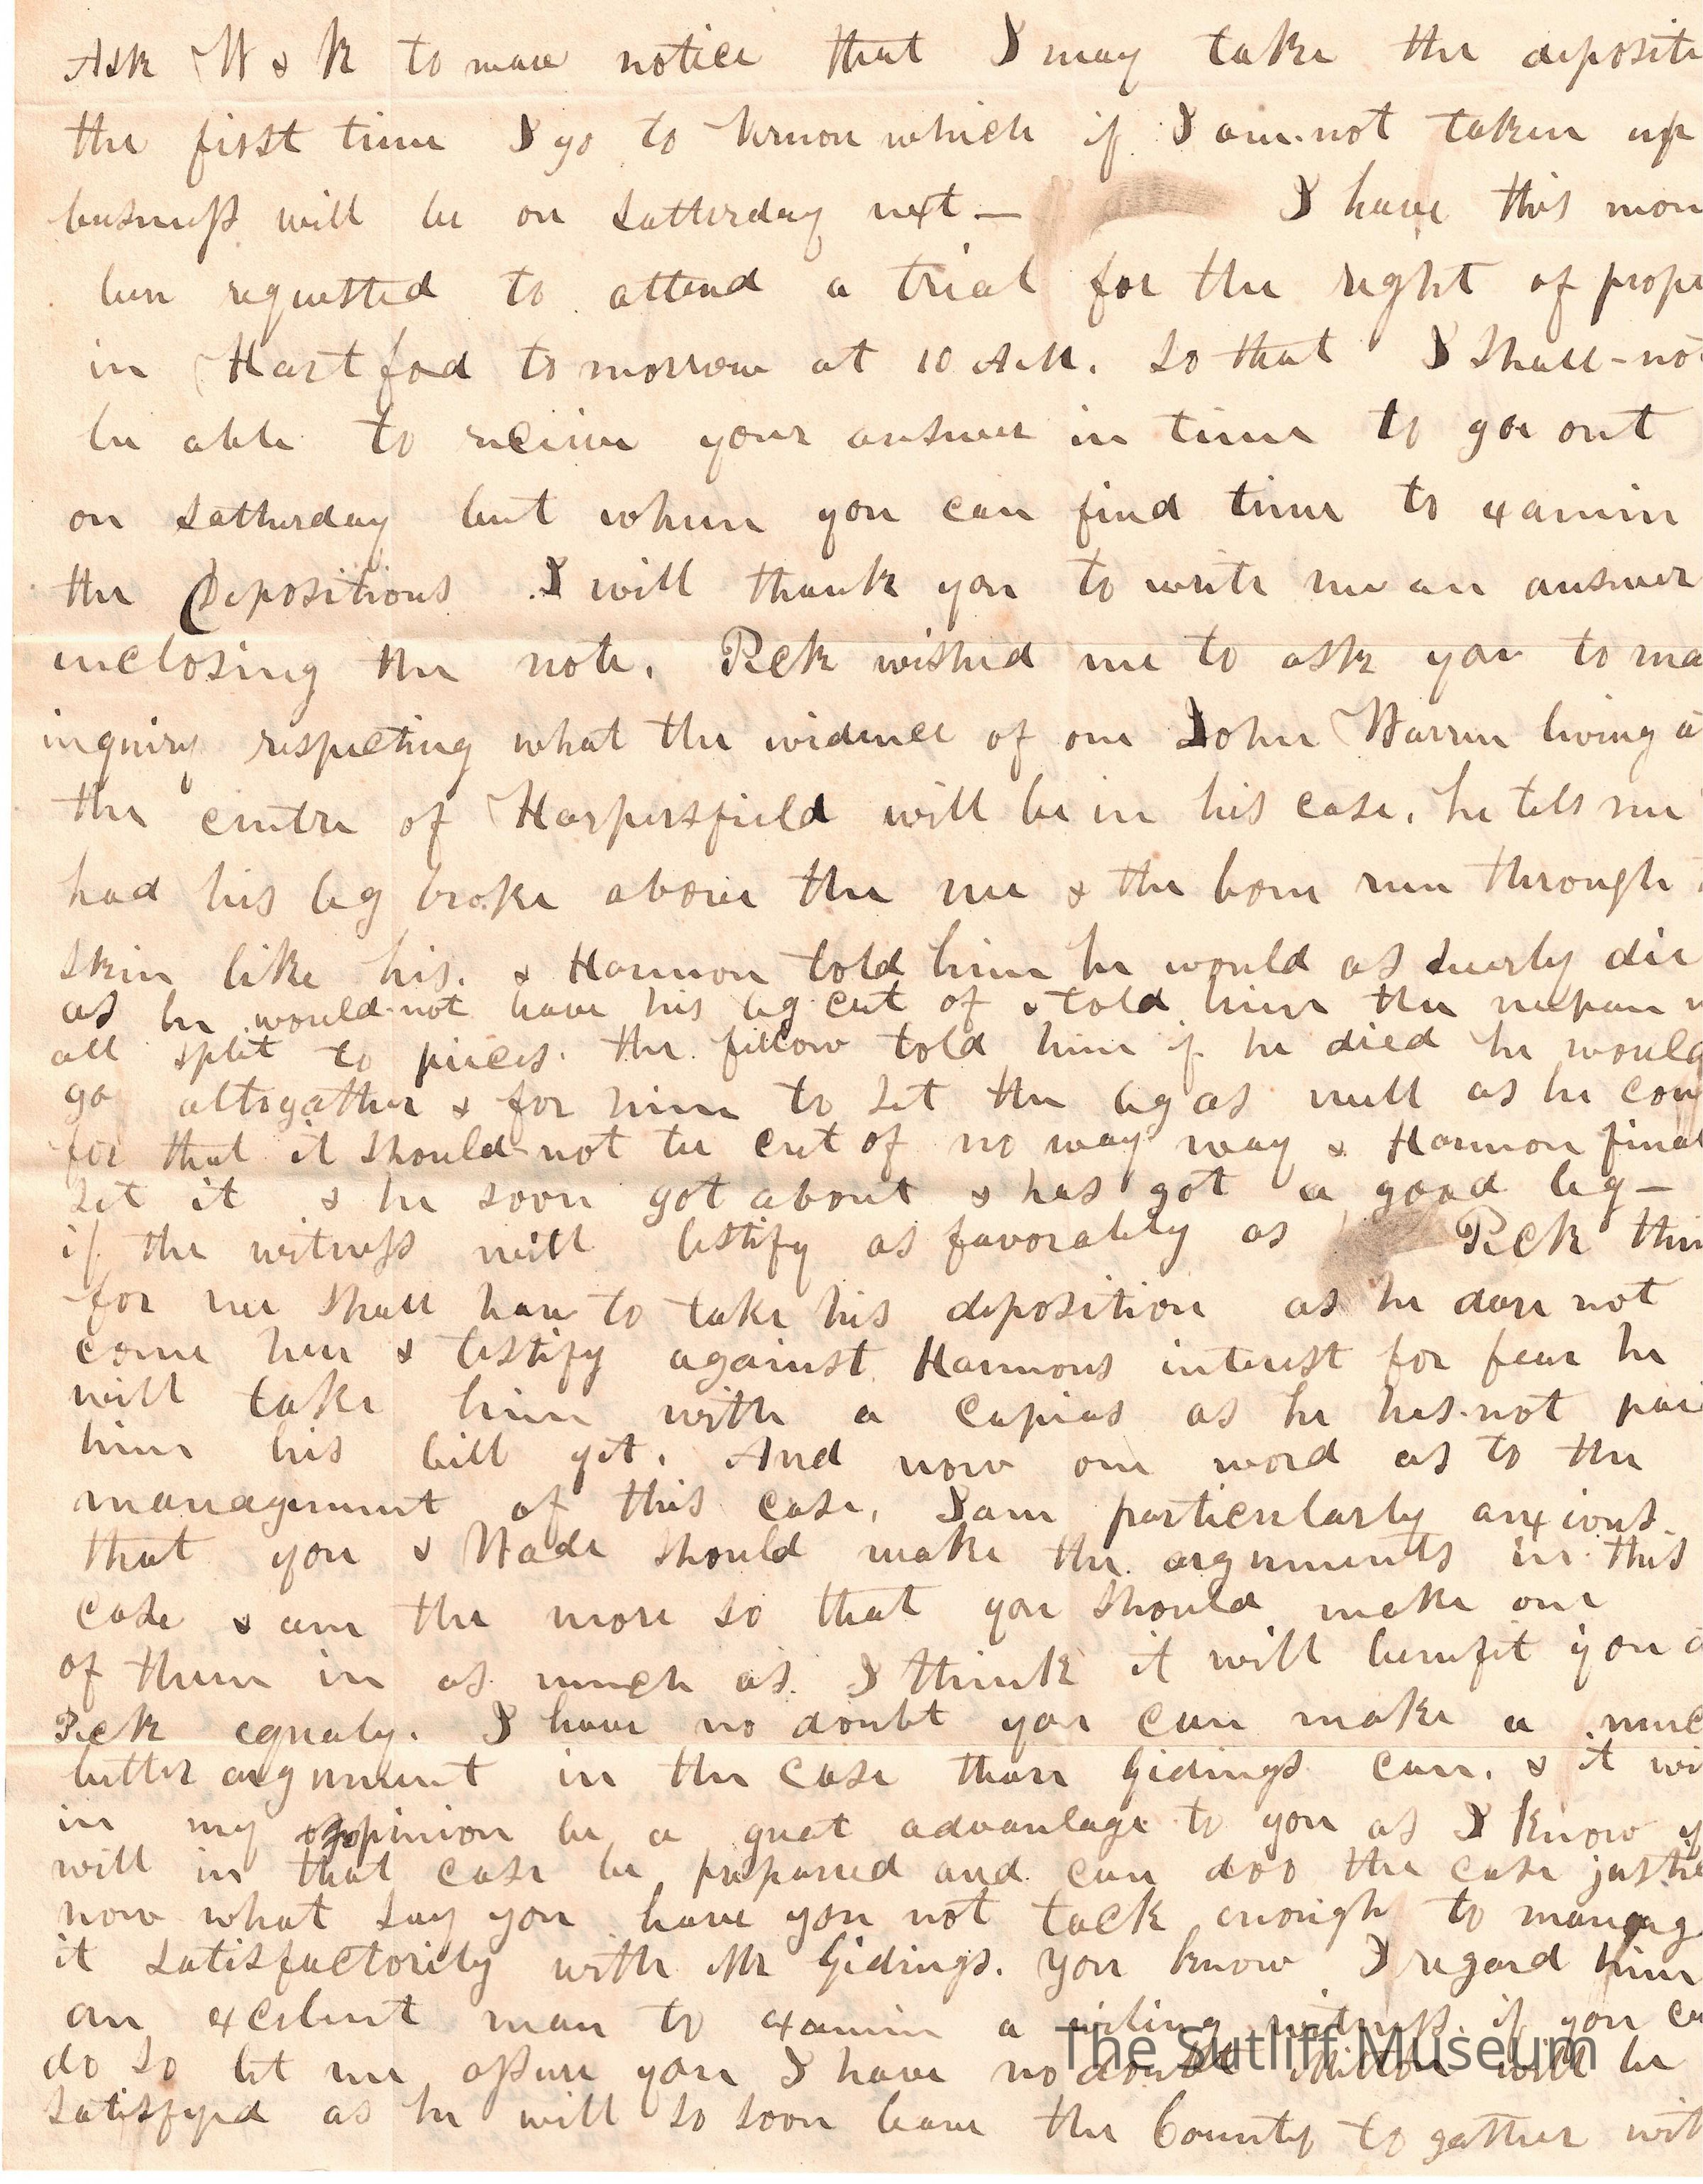 Ask W & K to mave notice that I may take the depositi
the first time I go to Vernon which if I am not taken up
business will be on Satterday next —
I have this mor
ben requested to attend a trial for the right of prope
in Hartford to morrow at 10 A.M. So that I shall not
be able to receive your answer in time to go out
on Satturday but when you can find time to examin
the Depositions I will thank you to write me an answer
inclosing the note. Peck wished me to ask you to ma
inquiry respecting what the evidence of one John Warren living a
the centre of Harpersfield will be in his case. he tels me
had his leg broke above the nee & the bone run through
skin like his. & Harmon told him he would as surely die
as he would not have his leg cut of & told him the neepan
all split to pieces. the fellow told him if he died he would
go altogather & for him to set the leg as well as he cou
for that it should not be cut of no way way & Harmon final
set it & he soon got about & has got a good leg —
if the witness will testify as favorably as Peck thin
for me shall have to take his deposition as he dare not
come here & testify against Harmons interest for fear he
will take him with a capias as he has not pai
him his bill yet. And now one word as to the
management of this case, I am particularly anxious
that you & Wade should make the arguments in this
case & am the more so that you should make one
of them in as much as I think it will benefit you a
Peck equaly. I have no doubt you can make a muc
better argument in the case than Gidings can. & it wi
in my oppinion be a great advantage to you as I know y
will in that case be prepared and can doo the case justic
now what say you have you not tack enough to manag
it satisfactorily with Mr Gidings. You know I regard him
an excelent man to examin a wiling witness. if you ca
do so let me assure you I have no doubt will be
satisfyed as he will so soon leave the County to gather wit
The Sutliff Museum